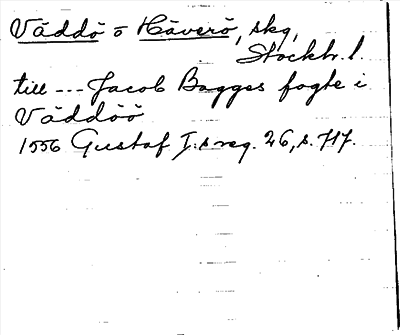 Väddö o Häverö, skg,
Stockh. l
till --- Jacob Bagges fogte i
Väddöö
1556 Gustaf I:s reg. 26, s. 717.